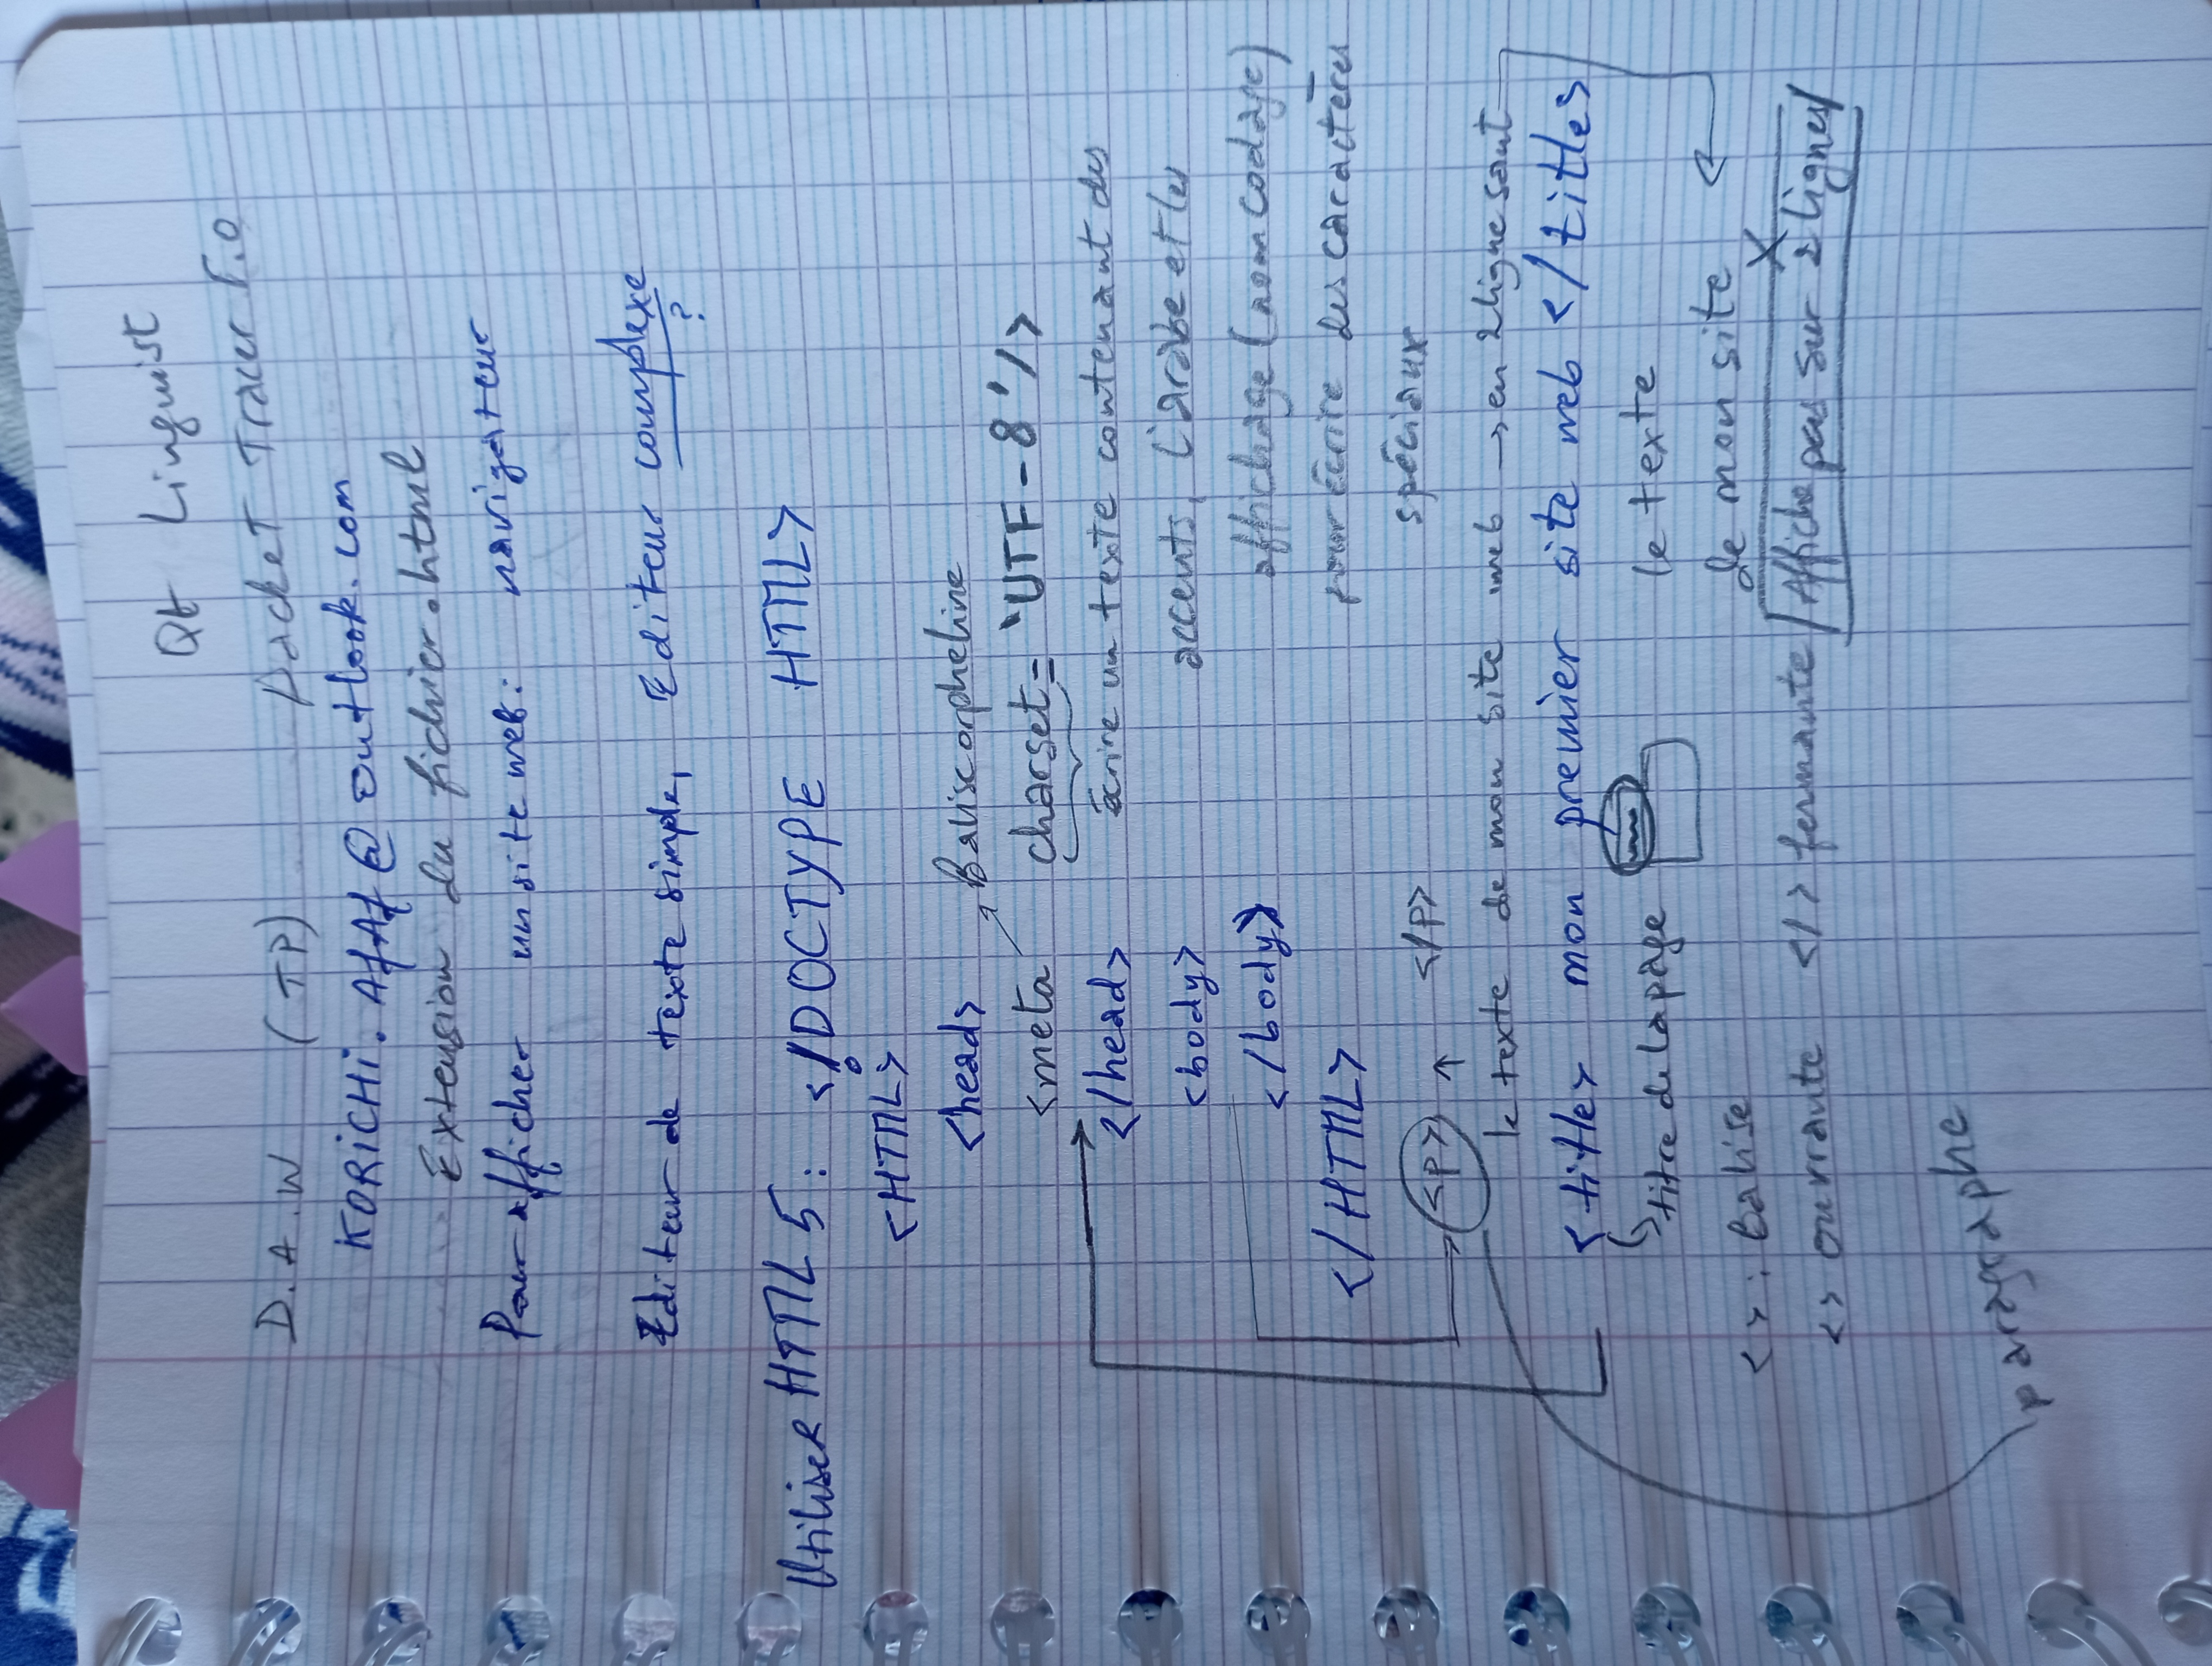 Qt Linguist
D.A.W (TP) Packet Tracer
KORiCHi.AfAf@outlook.com
Extension du fichier.html
Pour afficher un site web: navigateur
Editeur de texte simple, Editeur complexe ?
Utiliser HTML 5: <!DOCTYPE HTML>
<HTML>
<head> Balise orpheline
<meta charset= 'UTF-8'/>
</head> écrire un texte contenant des
<body> accents, l'arabe et les
</body> affichage (nom codage)
</HTML> pour Ecrire des caractères
<p> </p> spéciaux
le texte de mon site web → en 2 ligne saut
<title> mon premier site web </title>
titre de la page le texte
<>: balise de mon site
<> ouvrante </> fermante /Affiche pas sur 2 lignes/
paragraphe